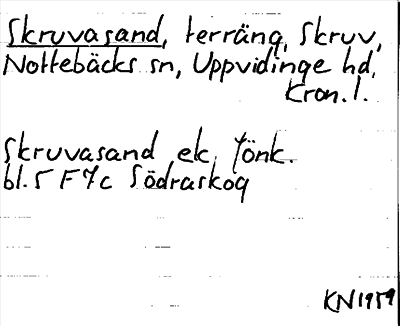 Skruvasand, terräng, Skruv,
Nottebäcks sn, Uppvidinge hd,
Kron. l.
Skruvasand ek. Jönk.
bl. 5 F 7c Södraskog
KN 1959